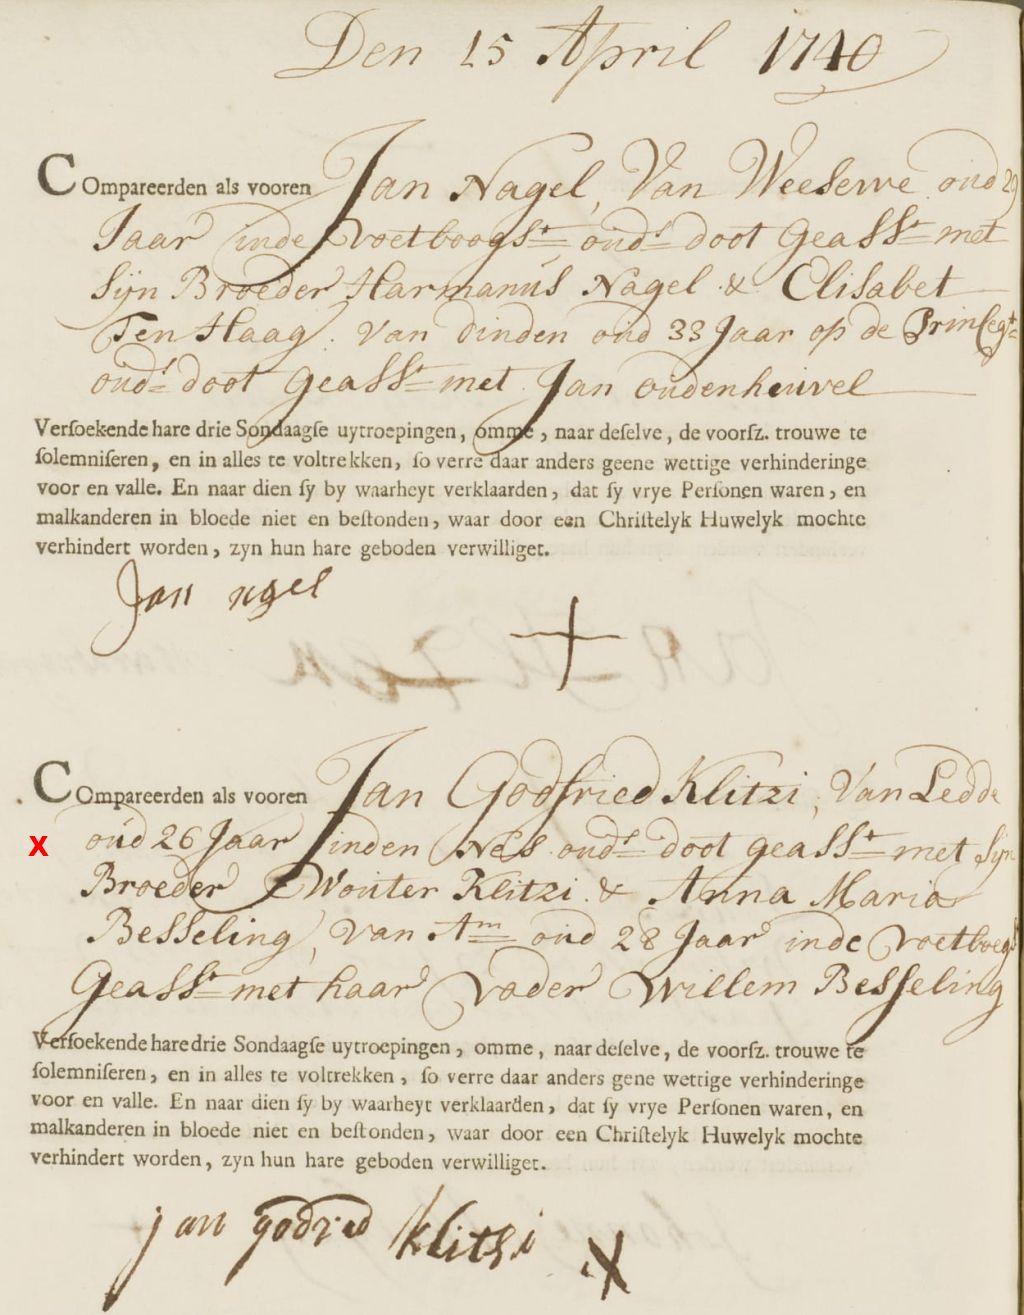 Den 15 April 1740
COmpareerden als vooren Jan Nagel, Van Weeserve oud 29
Jaar inde Voetboogst oud.s doot Geasst met
Sijn Broeder Harmanus Nagel & Elisabet
Ten Haag. Van Dinden oud 33 Jaar op de Prinsegt
oud.s doot Geasst met Jan Oudenheuvel
Versoekende hare drie Sondaagse uytroepingen, omme, naar deselve, de voorsz. trouwe te
solemniseren, en in alles te voltrekken, so verre daar anders geene wettige verhinderinge
voor en valle. En naar dien sy by waarheyt verklaarden, dat sy vrye Personen waren, en
malkanderen in bloede niet en bestonden, waar door een Christelyk Huwelyk mochte
verhindert worden, zyn hun hare geboden verwilliget.
Jan ngel
COmpareerden als vooren Jan Godfried Klitzi, Van Ledde
X oud 26 Jaar inden Nes oud.s doot geasst met Sijn
Broeder Wouter Klitzi & Anna Maria
Besseling, Van Am oud 28 Jaar inde Voetboogs
Geasst met haar Vader Willem Besseling
Versoekende hare drie Sondaagse uytroepingen, omme, naar deselve, de voorsz. trouwe te
solemniseren, en in alles te voltrekken, so verre daar anders gene wettige verhinderinge
voor en valle. En naar dien sy by waarheyt verklaarden, dat sy vrye Personen waren, en
malkanderen in bloede niet en bestonden, waar door een Christelyk Huwelyk mochte
verhindert worden, zyn hun hare geboden verwilliget.
jan godfried klitsi X